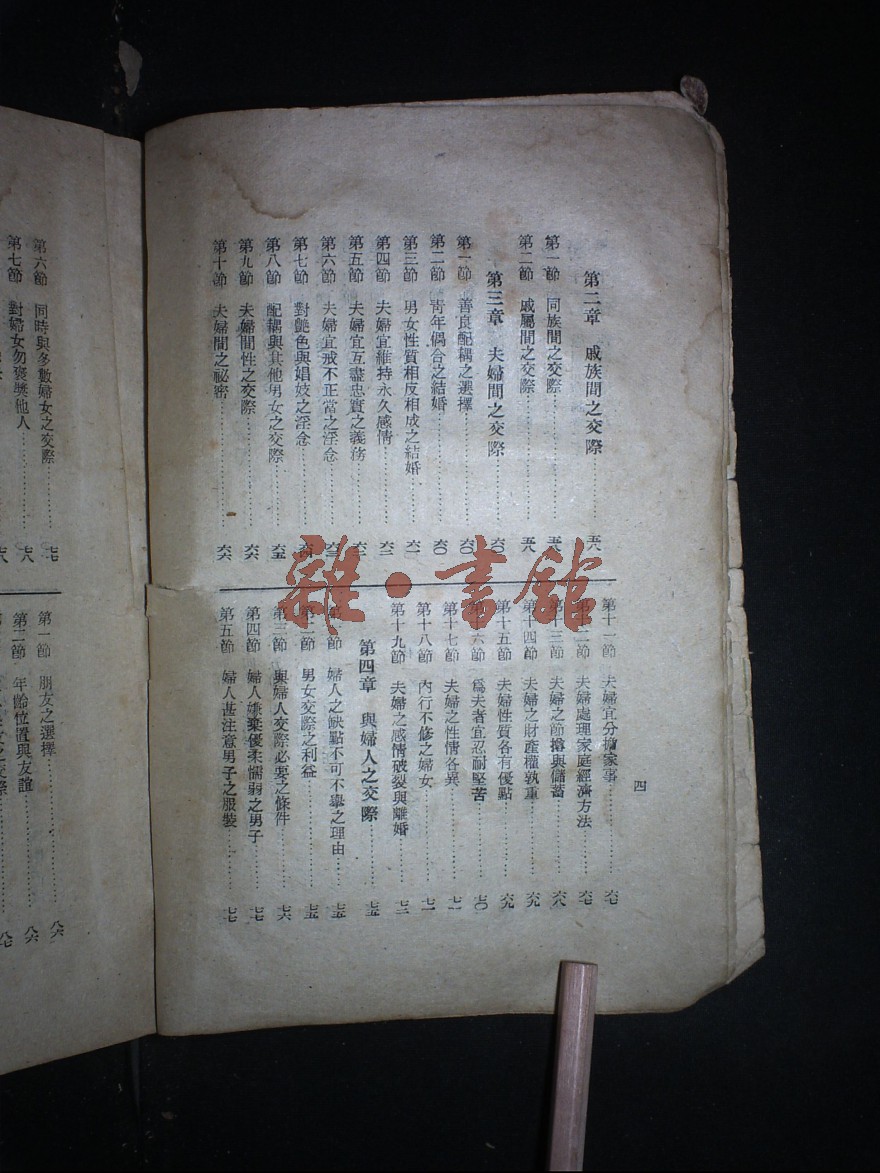 第二章　戚族間之交際…………五八
第一節　同族間之交際…………五八
第二節　戚屬間之交際…………五八
第三章　夫婦間之交際…………六〇
第一節　善良配耦之選擇…………六〇
第二節　青年偶合之結婚…………六〇
第三節　男女性質相反相成之結婚…………六一
第四節　夫婦宜維持永久感情…………六二
第五節　夫婦宜互盡忠實之義務…………六二
第六節　夫婦宜戒不正當之淫念…………六三
第七節　對艷色與娼妓之淫念…………六四
第八節　配耦與其他男女之交際…………六五
第九節　夫婦間性之交際…………六六
第十節　夫婦間之祕密…………六六
第十一節　夫婦宜分擔家事…………六七
第十二節　夫婦處理家庭經濟方法…………六七
第十三節　夫婦之節撙與儲蓄…………六八
第十四節　夫婦之財產權孰重…………六九
第十五節　夫婦性質各有優點…………六九
第十六節　爲夫者宜忍耐堅苦…………七〇
第十七節　夫婦之性情各異…………七一
第十八節　內行不修之婦女…………七一
第十九節　夫婦之感情破裂與離婚…………七二
第四章　與婦人之交際…………七五
第一節　婦人之缺點不可不舉之理由…………七五
第二節　男女交際之利益…………七五
第三節　與婦人交際必要之條件…………七六
第四節　婦人嫌棄優柔懦弱之男子…………七七
第五節　婦人甚注意男子之服裝…………七七
四
第六節　同時與多數婦女之交際…………七
第七節　對婦女勿褒獎他人…………七八
第一節　朋友之選擇…………八六
第二節　年齡位置與友誼…………八六
雜·書館